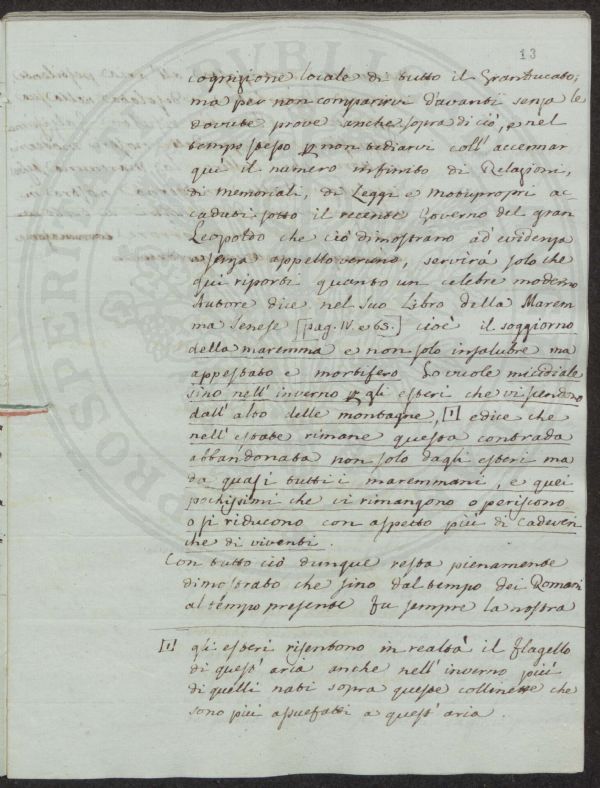 13
cognizione locale di tutto il GranDucato;
ma per non comparirvi d'avanti senza le
dovute prove anche sopra di ciò, e nel
tempo stesso p non tediarvi coll' accennar
qui il numero infinito di Relazioni,
di Memoriali, di Leggi e Motupropri ac-
caduti sotto il recente Governo del gran
Leopoldo che ciò dimostrano ad evidenza
e senza appello veruno, servirà solo che
qui riporti quanto un celebre moderno
Autore dice nel suo Libro della Marem
ma Senese [pag. IV. e 63.] cioè il soggiorno
della maremma e non solo insalubre ma
appestato e mortifero Lo vuole micidiale
sino nell' inverno p gli esteri che vi scendono
dall' alto delle montagne, [1] e dice che
nell' estate rimane questa contrada
abbandonata non solo dagli esteri ma
da quasi tutti i maremmani, e quei
pochissimi che vi rimangono o periscono
o si riducono con aspetto più di cadaveri
che di viventi.
Con tutto ciò dunque resta pienamente
dimostrato che sino dal tempo dei Romani
al tempo presente fu sempre la nostra
[1] gli esteri risentono in realtà il flagello
di quest' aria anche nell' inverno più
di quelli nati sopra queste collinette che
sono più assuefatti a quest' aria.